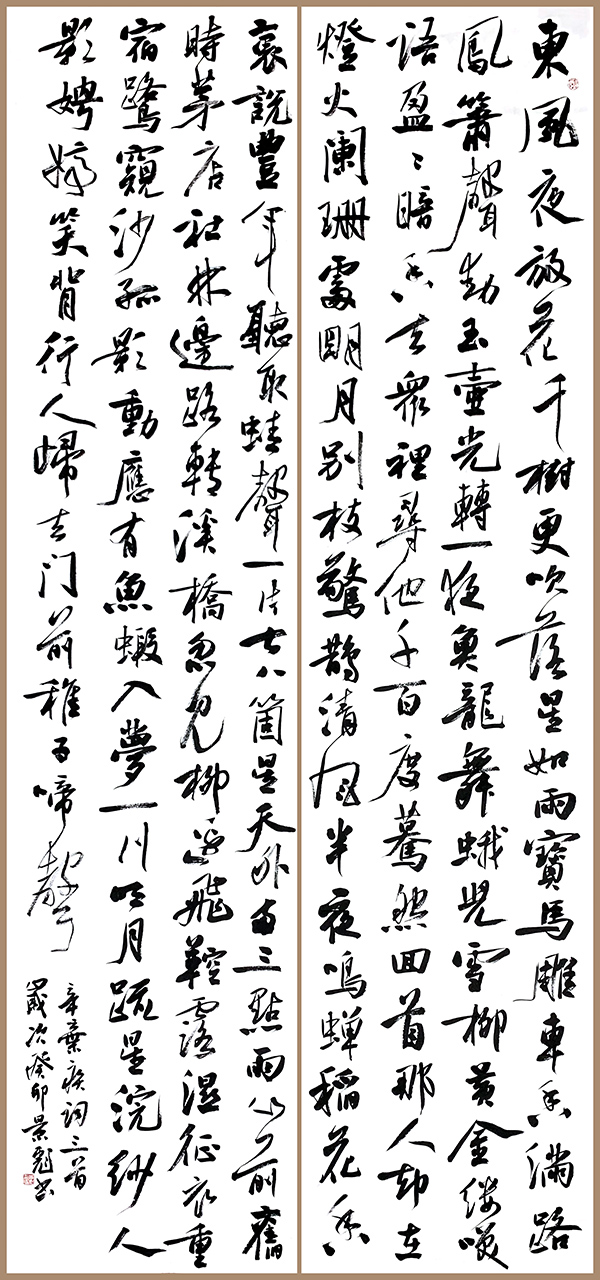 東風夜放花千樹更吹落星如雨寶馬雕車香滿路
鳳簫聲動玉壺光轉一夜魚龍舞蛾兒雪柳黃金縷笑
語盈〻暗香去衆裡尋他千百度驀然回首那人却在
燈火闌珊處明月别枝驚鵲清風半夜鳴蟬稻花香
裏說豐年聽取蛙聲一片七八箇星天外兩三點雨山前舊
時茅店社林邊路轉溪橋忽見柳邊飛鞚露濕征衣重
宿鷺窺沙孤影動應有魚蝦入夢一川明月疏星浣紗人
影娉婷笑背行人歸去门前稚子啼聲
辛棄疾詞三首
歲次癸卯景彪書